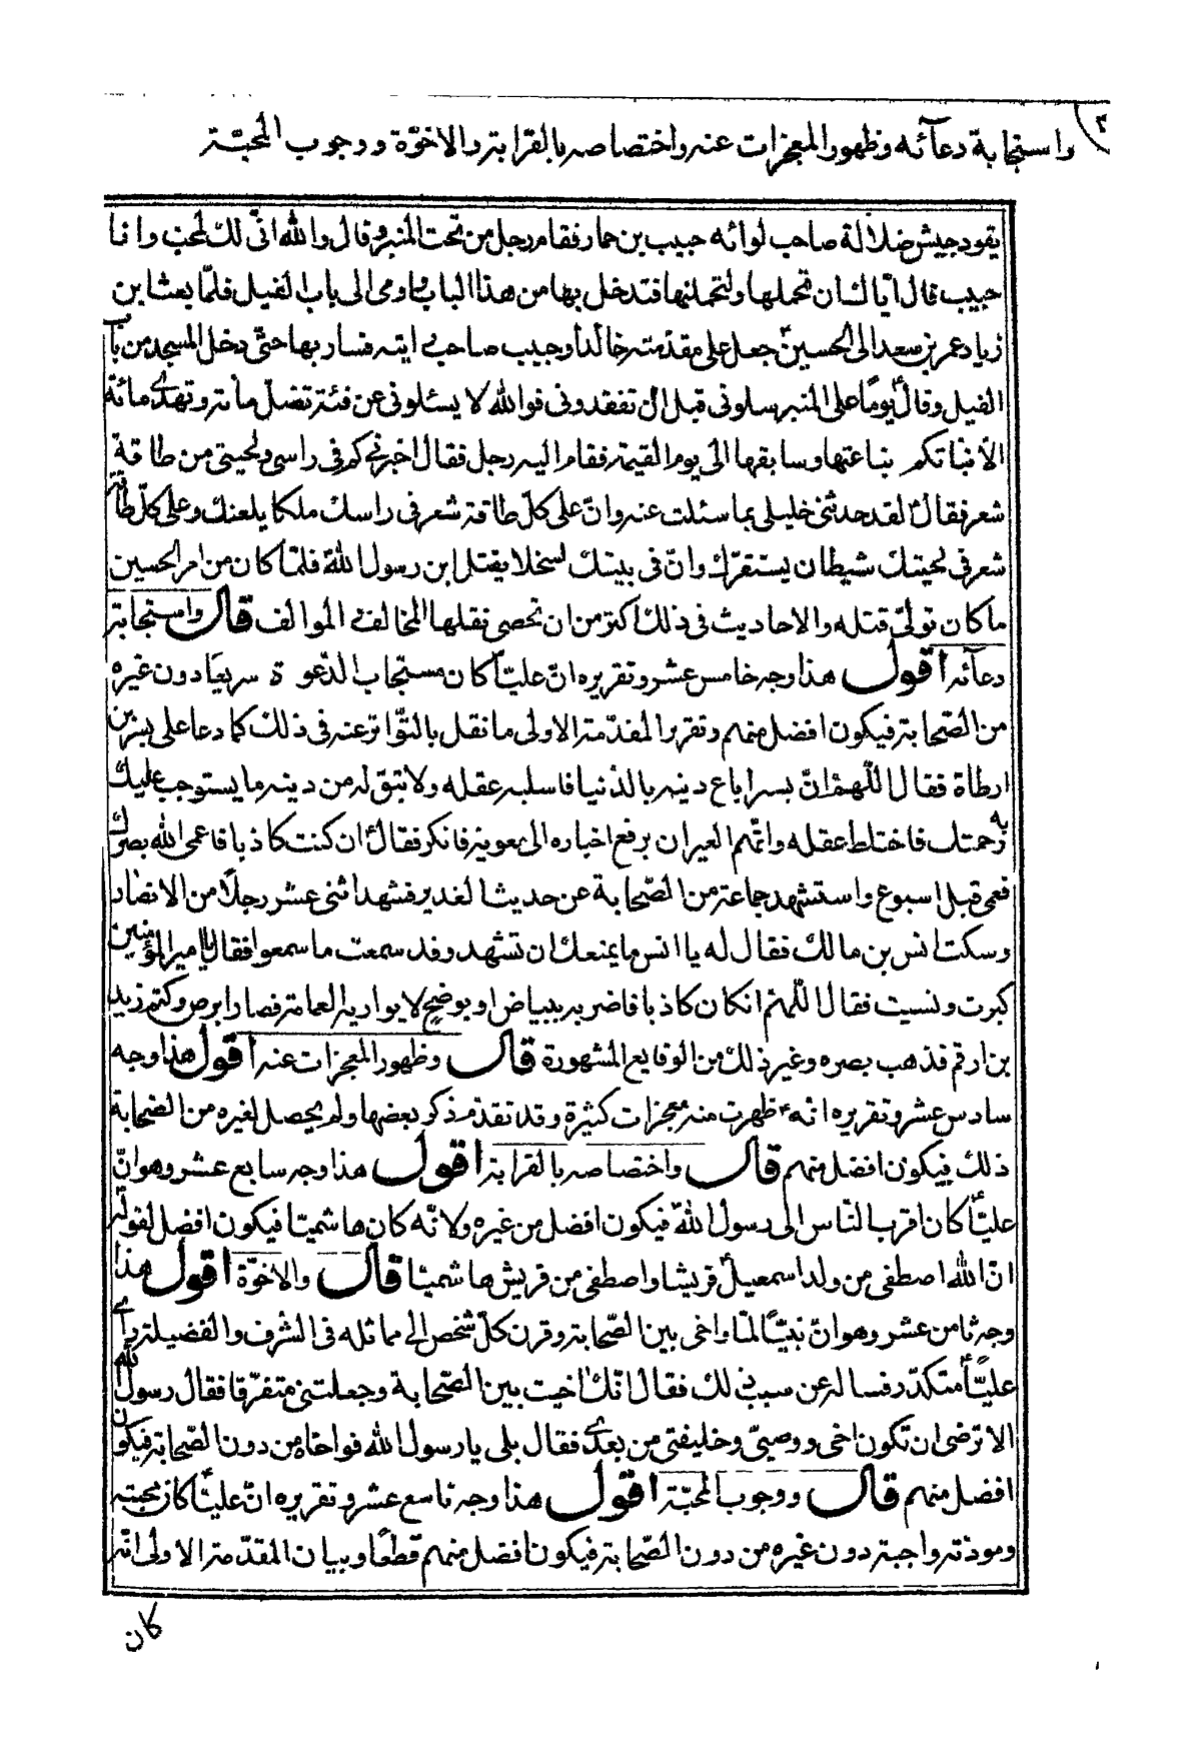 واستجابة دعآئه وظهور المعجزات عنه واختصاصه بالقرابة والاخوّة ووجوب المحبّة
يقود جيش ضلالة صاحب لوائه حبيب بن حمار فقام رجل من تحت المنبر وقال والله انّى لك لمحبّ وانا
حبيب قال ايّاك ان تحملها ولتحملنها فتدخل بها من هذا الباب واومى الى باب الفيل فلمّا بعث ابن
زياد عمر بن سعد الى الحسين جعل على مقدّمته خالدا وحبيب صاحب رايته فسار بها حتّى دخل المسجد من باب
الفيل وقال يومًا على المنبر سلونى قبل ان تفقدونى فوالله لا يسئلونى عن فئة تضل مأة وتهدى مائة
الا نبأتكم بناعتها وسابقها الى يوم القيمة فقام اليه رجل فقال اخبرنى كم فى راسى ولحيتى من طاقة
شعر فقال لقد حدثنى خليلى بما سئلت عنه وانّ على كلّ طاقة شعر فى راسك ملكا يلعنك وعلى كلّ طاقة
شعر فى لحيتك شيطان يستفزّك وانّ فى بيتك لسخلا يقتل ابن رسول الله فلمّا كان من امر الحسين
ما كان تولّى قتله والاحاديث فى ذلك اكثر من ان تحصى نقلها المخالف والموالف قال واستجابة
دعآئه اقول هذا وجه خامس عشر وتقريره انّ عليّا كان مستجاب الدّعوة سريعا دون غيره
من الصّحابة فيكون افضل منهم وتقرير المقدّمة الاولى ما نقل بالتّواتر عنه فى ذلك كما دعا على بسر بن
ارطاة فقال اللّهمّ انّ بسرا باع دينه بالدّنيا فاسلبه عقله ولا تبق له من دينه ما يستوجب عليك
به رحمتك فاختلط عقله واتّهم العيران برفع اخباره الى معوية فانكر فقال ان كنت كاذبا فاعمى الله بصرك
فعمى قبل اسبوع واستشهد جماعة من الصّحابة عن حديث الغدير فشهد اثنى عشر رجلًا من الانصار
وسكت انس بن مالك فقال له يا انس ما يمنعك ان تشهد وقد سمعت ما سمعوا فقال يا امير المؤمنين
كبرت ونسيت فقال اللّهمّ ان كان كاذبا فاضربه ببياض او بوضح لا يواريه العمامة فصار ابرص وكتم زيد
بن ارقم فذهب بصره وغير ذلك من الوقايع المشهورة قال وظهور المعجزات عنه اقول هذا وجه
سادس عشر وتقريره انه ظهرت منه معجزات كثيرة وقد تقدّم ذكر بعضها ولم يحصل لغيره من الصّحابة
ذلك فيكون افضل منهم قال واختصاصه بالقرابة اقول هذا وجه سابع عشر وهو انّ
عليّا كان اقرب النّاس الى رسول الله فيكون افضل من غيره ولانّه كان هاشميّا فيكون افضل لقوله
انّ الله اصطفى من ولد اسمعيل قريشا واصطفى من قريش هاشميّا قال والاخوّة اقول هذا
وجه ثامن عشر وهو انّ نبيّنا لمّا واخى بين الصّحابة وقرن كلّ شخص الى مماثله فى الشّرف والفضيلة راى
عليّا متكدّر فسأله عن سبب ذلك فقال انّك اخيت بين الصّحابة وجعلتنى متفرّقا فقال رسول الله
الا ترضى ان تكون اخى ووصيّى وخليفتى من بعدى فقال بلى يا رسول الله فواخاه من دون الصّحابة فيكون
افضل منهم قال ووجوب المحبّة اقول هذا وجه تاسع عشر وتقريره انّ عليّا كان محبّته
ومودّته واجبة دون غيره من دون الصّحابة فيكون افضل منهم قطعًا وبيان المقدّمة الاولى انّه
كان